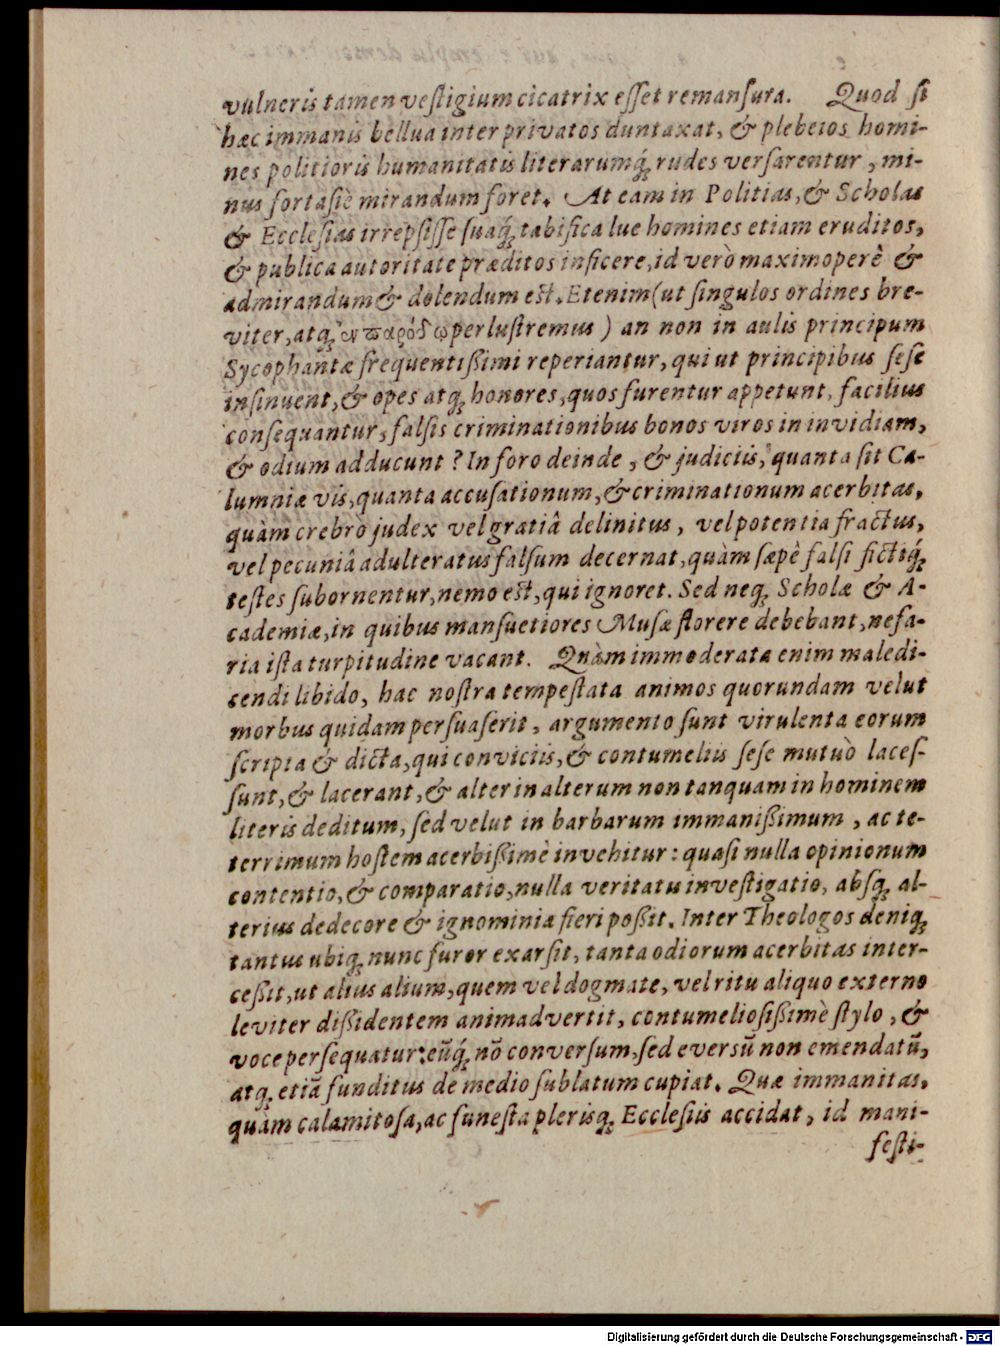 vulneris tamen veſtigium cicatrix eſſet remanſura. Quod ſi
hæc immanis bellua inter privatos duntaxat, & plebeios homi-
nes politioris humanitatis literarumq́; rudes verſarentur, mi-
nus fortaſſè mirandum foret. At eam in Politias, & Scholas
& Eccleſias irrepſiſſe ſuaq́; tabifica lue homines etiam eruditos,
& publica autoritate præditos inficere, id verò maximoperè &
admirandum & dolendum eſt. Etenim (ut ſingulos ordines bre-
viter, atq; ἐν παρόδῳ perluſtremus) an non in aulis principum
Sycophantæ frequentißimi reperiantur, qui ut principibus ſeſe
inſinuent, & opes atq; honores, quos furentur appetunt, facilius
conſequantur, falſis criminationibus bonos viros in invidiam,
& odium adducunt? In foro deinde, & judiciis, quanta ſit Ca-
lumniæ vis, quanta accuſationum, & criminationum acerbitas,
quàm crebrò judex vel gratiâ delinitus, vel potentia fractus,
vel pecuniâ adulteratus falſum decernat, quàm ſæpè falſi fictiq́;
teſtes ſubornentur, nemo eſt, qui ignoret. Sed neq; Scholæ & A-
cademiæ, in quibus manſuetiores Muſæ florere debebant, nefa-
ria iſta turpitudine vacant. Quàm immoderata enim maledi-
cendi libido, hac noſtra tempeſtata animos quorundam velut
morbus quidam perſuaſerit, argumento ſunt virulenta eorum
ſcripta & dicta, qui conviciis, & contumeliis ſeſe mutuò laceſ-
ſunt, & lacerant, & alter in alterum non tanquam in hominem
literis deditum, ſed velut in barbarum immanißimum, ac te-
terrimum hoſtem acerbißimè invehitur: quaſi nulla opinionum
contentio, & comparatio, nulla veritatis inveſtigatio, absq; al-
terius dedecore & ignominia fieri poßit. Inter Theologos deniq;
tantus ubiq; nunc furor exarſit, tanta odiorum acerbitas inter-
ceßit, ut alius alium, quem vel dogmate, vel ritu aliquo externo
leviter dißidentem animadvertit, contumelioſißimè ſtylo, &
voce perſequatur: eūq́; nō converſum, ſed everſū non emendatū,
atq; etiā funditus de medio ſublatum cupiat. Quæ immanitas,
quàm calamitoſa, ac funeſta plerisq; Eccleſiis accidat, id mani-
feſti-
Digitalisierung gefördert durch die Deutsche Forschungsgemeinschaft - DFG